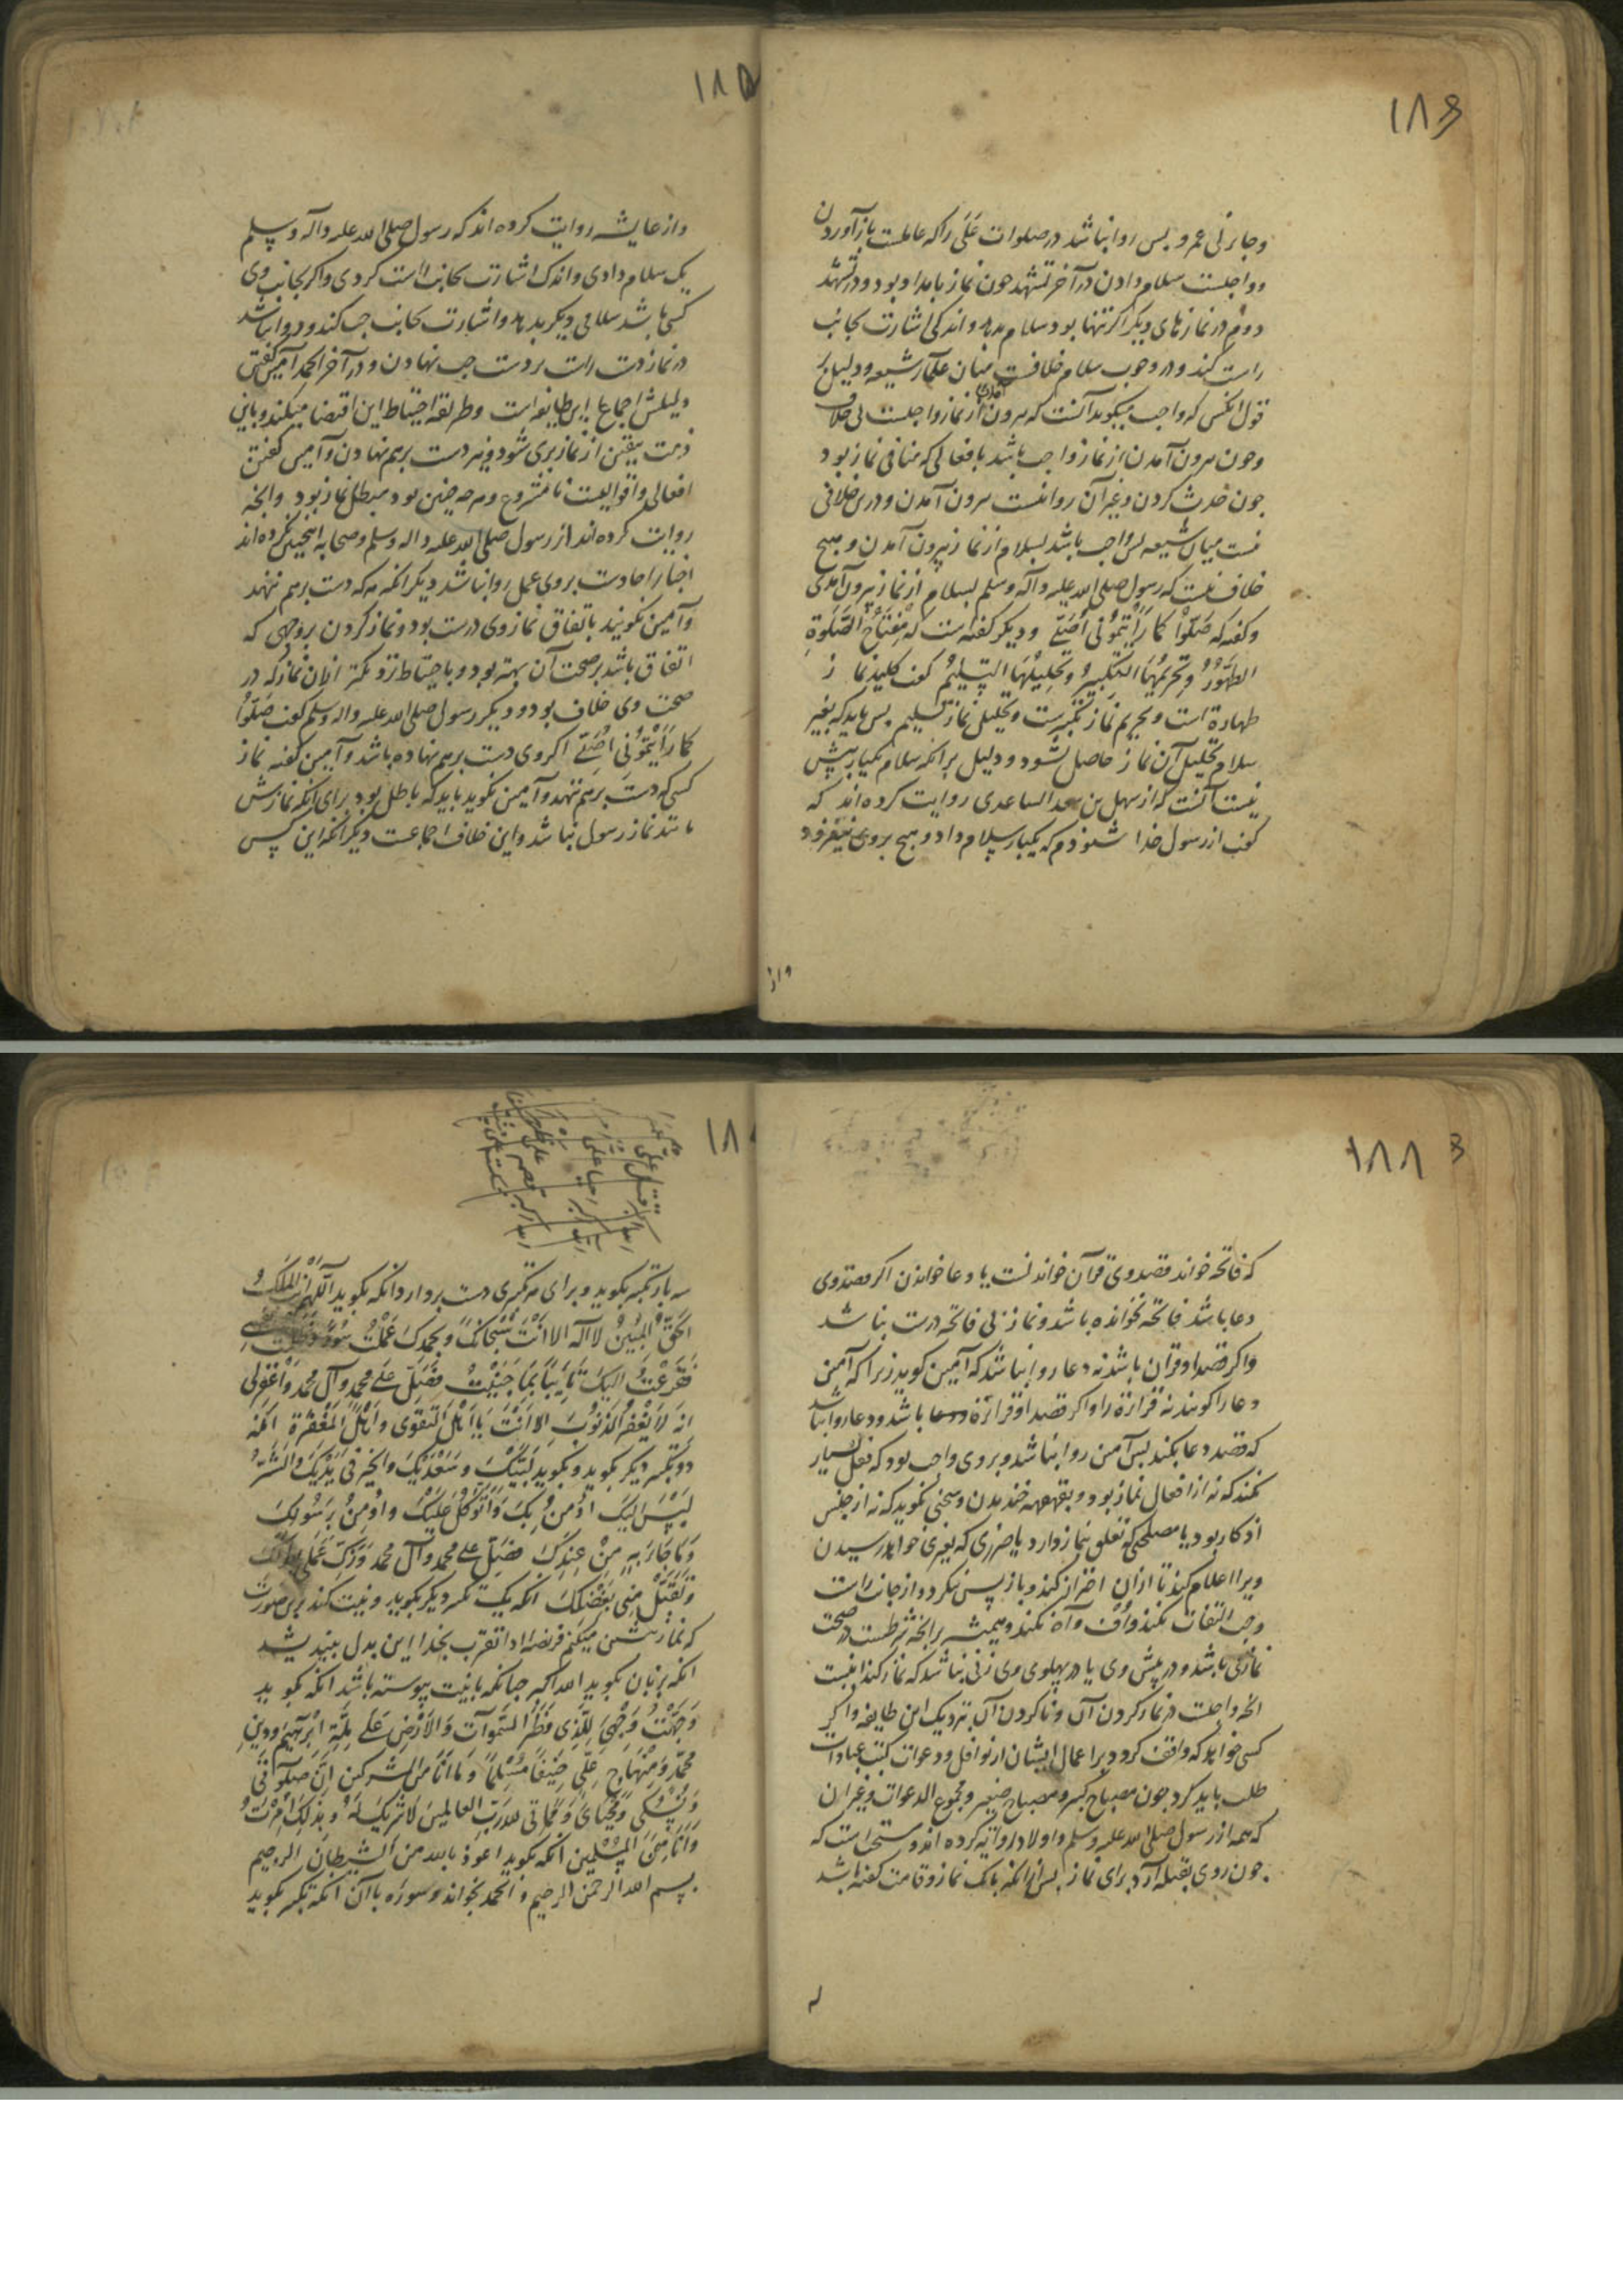 ۱۸۶
وجابر بی عمرو پس روا نباشد در صلوات عَلَی را که عاملست باز آوردن
و واجبست سلام دادن در آخر تشهد چون نماز بامداد بود و در تشهد
دوم در نمازهای دیگر اگر تنها بود سلام بدهد و اندکی اشارت بجانب
راست کند و در وجوب سلام خلافست میان علمآء شیعه و دلیل بر
قول انکس که واجب میگوید آنست که بیرون آمدن از نماز واجبست بی خلاف
وچون بیرون آمدن از نماز واجب باشد بافعالی که منافی نماز بود
چون حدث کردن وغیر آن روا نیست بیرون آمدن ودرین خلافی
نیست میان شیعه پس واجب باشد بسلام از نماز بیرون آمدن و هیچ
خلاف نیست که رسول صلی الله علیه وآله وسلم بسلام از نماز بیرون آمدی
وگفته که صَلّوْا کما رَأَیْتمُوُنی اُصَلّے ودیگر گفته است که مِفْتَاحُ الصَّلٰوةِ
الطَّهُوُرُ وتَحْرِیمُهَا التَّکْبِیرُ وتَحلِیْلُهَا التَّسْلِیْمُ گفت کلید نماز
طهارة است وتحریم نماز تکبیرست وتحلیل نماز تسلیم پس باید که بغیر
سلام تحلیل آن نماز حاصل نشود ودلیل بر انکه سلام یکبار بیش
نیست آنست که از سهل بن سعد الساعدی روایت کرده اند که
گفت از رسول خدا شنوذم که یکبار سلام داد وهیچ بروی نیفزود
۱۸۵
واز عایشه روایت کرده اند که رسول صلی الله علیه وآله وسلم
یک سلام دادی واندک اشارت بجانب راست کردی واگر بجانب وی
کسی باشد سلامی دیگر بدهد واشارت بجانب چپ کند وروا نباشد
در نماز دست راست بر دست چپ نهادن ودر آخر الحمد آمین گفتن
دلیلش اجماع این طایفه است وطریقه احتیاط این اقتضا میکند وباین
ذمت بیقین از نماز بری شود ونیز دست برهم نهادن وآمین گفتن
افعالی واقوالیست نا مشروع وهرچه چنین بود مبطل نماز بود وانچه
روایت کرده اند از رسول صلی الله علیه واله وسلم وصحابه اینچنین کرده اند
اخبار احادست بروی عمل روا نباشد دیگر انکه هر که دست برهم ننهد
وآمین نگوید باتفاق نماز وی درست بود ونماز کردن بروجهی که
اتفاق باشد بر صحت آن بهتر بود وباحتیاط نزدیکتر ازان نماز که در
صحت وی خلاف بود ودیگر رسول صلی الله علیه واله وسلم گفت صَلّوْا
کما رَأَیْتمُوُنی اُصَلّے اگر وی دست برهم نهاده باشد وآمین گفته نماز
کسی که دست برهم ننهد وآمین نگوید باید که باطل بود برای انکه نمازش
مانند نماز رسول نباشد واین خلاف اجماعست دیگر انکه این کس
۱۸۸
که فاتحه خواند قصد وی قرآن خواندنست یا دعا خواندن اگر قصد وی
دعا باشد فاتحه نخوانده باشد ونماز بی فاتحه درست نباشد
واگر قصد او قرآن باشد نه دعا روا نباشد که آمین گوید زیرا که آمین
دعا را گویند نه قرآءة را واگر قصد او قراءة ودعا باشد ودعا روا نباشد
که قصد دعا بکند پس آمین روا نباشد وبروی واجب بود که فعل بسیار
نکند که نه از افعال نماز بود وبقهقهه خندیدن وسخنی نگوید که نه از جنس
اذکار بود یا مصلحتی که تعلق بنماز دارد یا ضرری که بغیری خواهد رسیدن
ویرا اعلام کند تا ازان احتراز کند وباز پس ننگرد واز جانب راست
وچپ التفات نکند واُف وآه نکند وهمیشه بر انچه شرطست در صحت
نماز می باشد ودر پیش وی یا در پهلوی وی زنی نباشد که نماز کند اینست
انچه واجبست در نماز کردن آن وناکردن آن بنزدیک این طایفه واگر
کسی خواهد که واقف گردد بر اعمال ایشان از نوافل ودعوات کتب عبادات
طلب باید کرد چون مصباح کبیر ومصباح صغیر ومجموع الدعوات وغیر آن
که همه از رسول صلی الله علیه وسلم واولاد او روایة کرده اند ومستحب است که
چون روی بقبله آرد برای نماز پس از انکه بانک نماز وقامت گفته باشد
سه بار تکبیر بگوید وبرای هر تکبیری دست بردارد انکه بگوید اللّهُمَّ اَنْتَ المَلِکُ
الحَقُّ المُبِیْنُ لا اله الا انْتَ سُبْحَانَکَ وَبحَمْدِکَ عَمِلْتُ سُوْءً وظَلَمْتُ نَفْسِے
فَفَرَغْتُ الیکَ تَایِبًا مِمّا جَنَیْتُ فَصَلِّ عَلے محمد وآل محمد وَاغْفِرلی
انه لَا یَغْفِرُ الذنُوُبَ الا اَنْتَ یَا اَهْلَ التقوی وَاَهْلَ المَغْفِرَة انکه
دو تکبیر دیگر بگوید وبگوید لَبَّیْکَ وسَعْدَیْکَ وَالخَیرُ فی یَدَیْکَ وَالشَّرُّ
لَیْسَ الیکَ اُوْمِنُ بِکَ وَاَتَوَکّلُ عَلَیْکَ واُوْمِنُ بِرَسُولِکَ
وَمَا جَاءَ بِهِ مِنْ عِنْدِکَ فصَلِّ علے محمد وآل محمد وَزَکِّ عَمَلی بِطَوْلِکَ
وتَقَبَّلْ مِنّی بِفَضْلِکَ انکه یک تکبیر دیگر بگوید ونیت کند برین صورت
که نماز پیشین میکنم فریضه ادا تقرب بخدا این بدل بیندیشد
انکه بزبان بگوید الله اکبر چنانکه بانیت پیوسته باشد انکه بگوید
وَجَّهْتُ وَجْهیَ لِلّذِی فَطَرَ السّمٰوآت وَالاَرْضَ عَلے مِلّةِ ابْرٰهیمَ وَدِینِ
محمّدٍ وَمِنْهَاجِ عَلِیّ حَنِیْفًا مُسْلِمًا وَمَا اَنَا مِنَ المشرکینَ اِنَّ صَلَوٰتی
وَنُسُکی وَمَحْیَایَ وَمَمَاتی للهِ رَبِّ العالمینَ لَا شَریکَ لَهُ وبِذلِکَ اُمِرْتُ
وَانَا مِنَ المُسْلِمین انکه بگوید اعوذ بالله من الشیطان الرجیم
بسم الله الرحمن الرحیم والحمد بخواند وسوره باآن انکه تکبیر بگوید